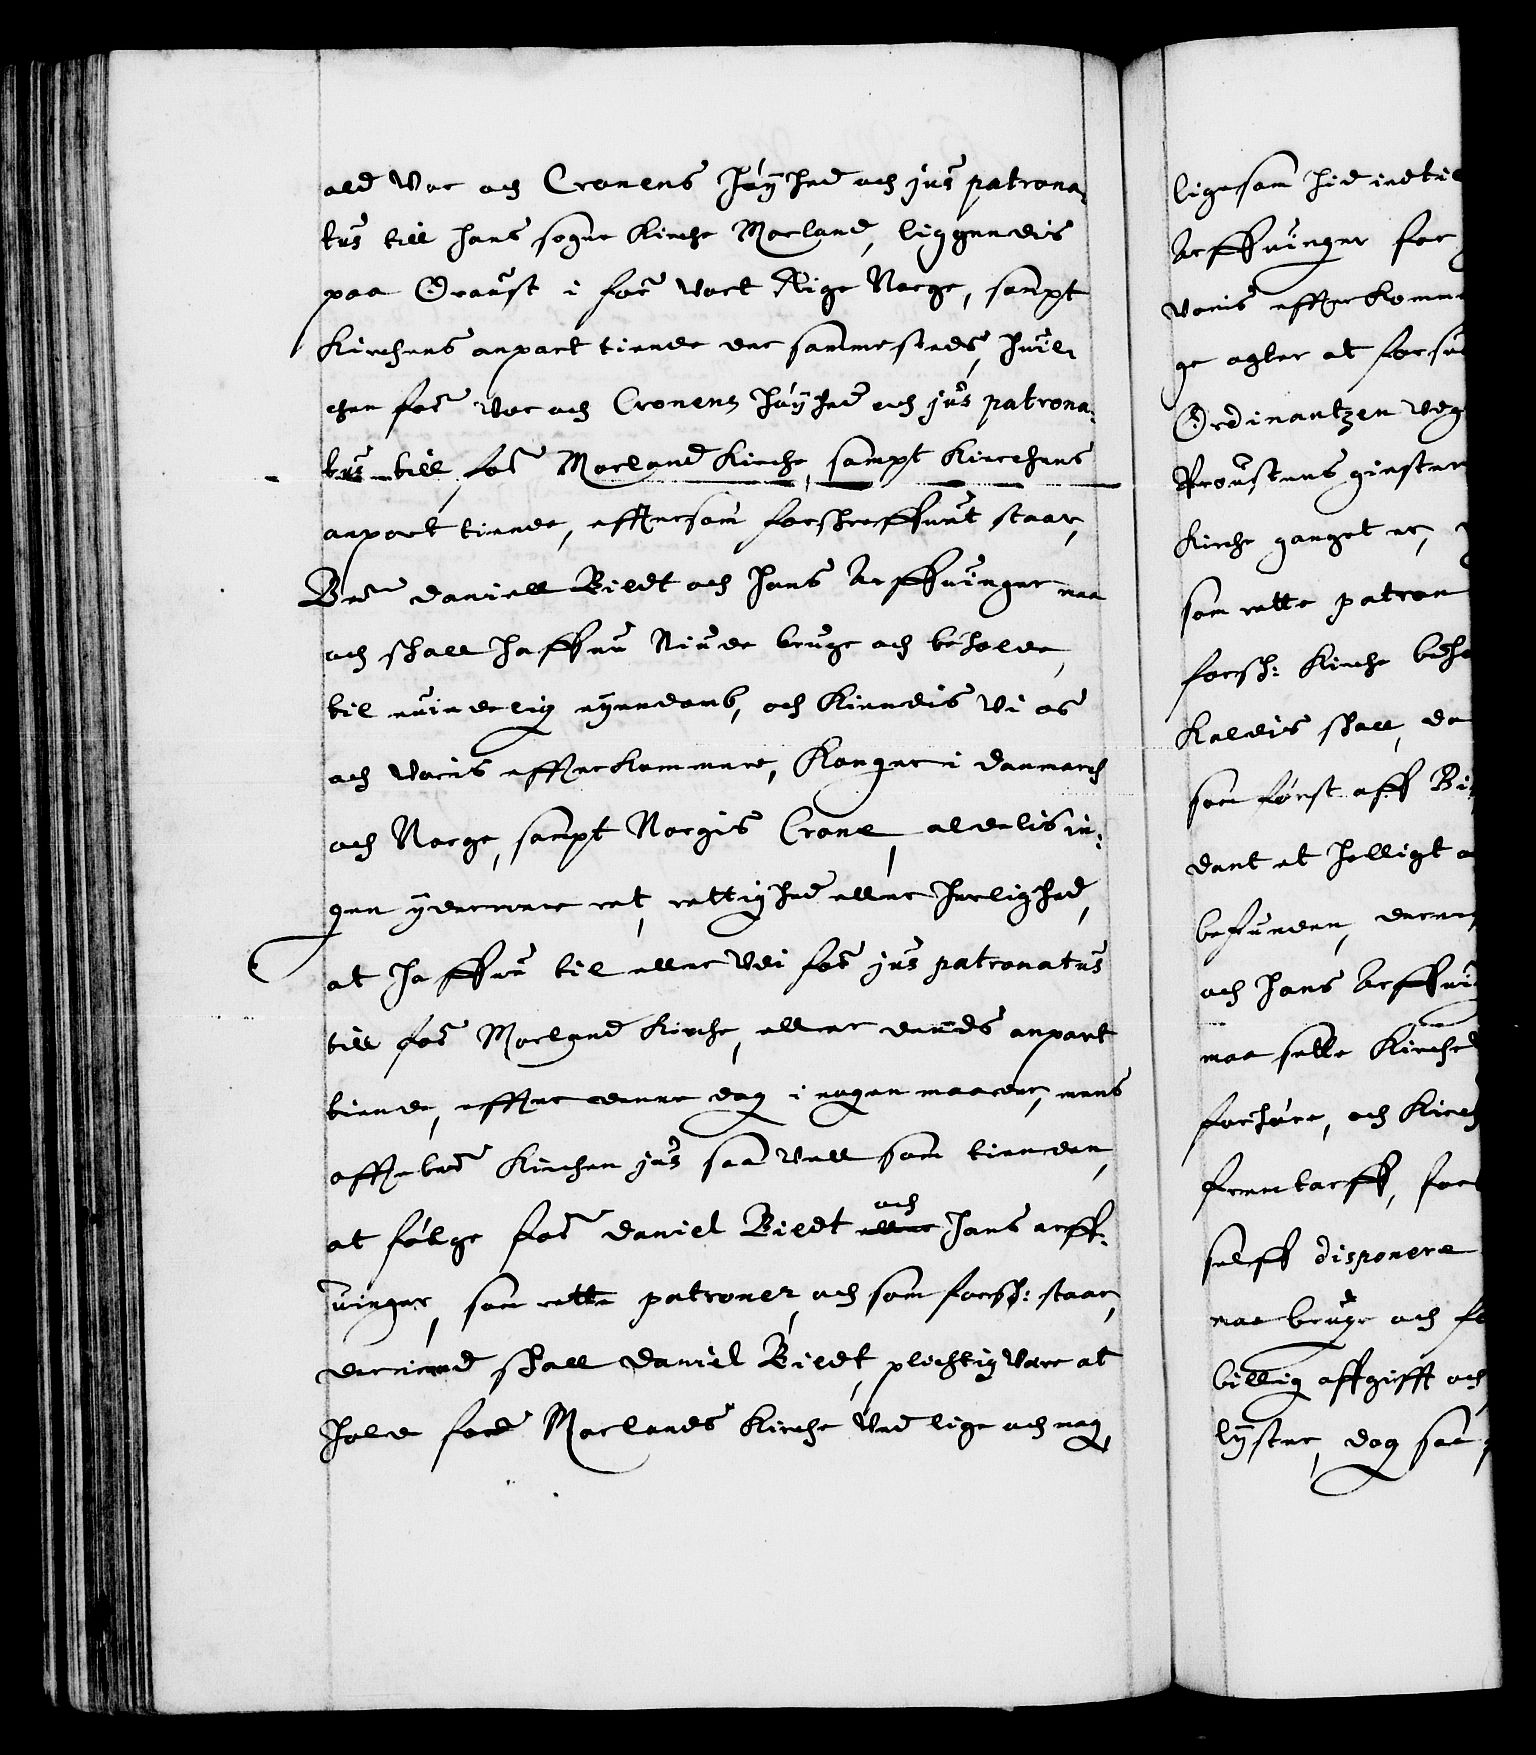 ald Vor och Cronens Høyhed och jus patrona-
tus till hans sogne Kirche Morland, liggendis
paa Oroust i for: vort Rige Norge, sampt
Kirchens anpart tiende der sammesteds, huil-
chen for: Vor och Cronens Høyhed och jus patrona-
tus till for: Morland Kirche, sampt Kirchens
anpart tiende, effter som forschreffuut staar,
Bem: Daniell Bildt och hans Arffuinger maa
och schall haffue Niude bruge och beholde,
til euindelig eyendomb, och Kiendis Vi os
och Voris effterkommere, Konger i Danmarch
och Norge, sampt Norgis Crone, aldelis in-
gen ydermere ret, rettighed eller herlighed,
at haffue til eller Vdi for: jus patronatus
till for: Morland Kirche, eller dends anpart
tiende, effter denne dag i nogen maader, mens
offtebem: Kirchen jus saa Vell som tienden,
at følge for: Daniel Bildt och hans arff-
uinger, som rette patroner, och som forsch: staar,
derimod schall Daniel Bildt, plichtig Vere at
holde ford Morlands Kirche Ved lige och mag
ligesom hid indtil
Arffuinger for
Voris effterkomme
ge agter at forsu
Ordinantzen Veg
Proustens giester
Kirche ganget er,
som rette patron
forsch: Kirche beho
Kaldis schall, da
som først aff Bi
dant et helligt
befunden, derne
och hans Arffui
maa sette Kirche
forhøre, och Kirch
fremtarff, for
selff disponere
maa bruge och f
billig affgifft och
lyster, dog saa